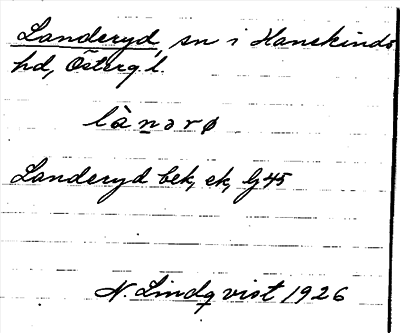 Landeryd, sn i Hanekinds
hd, Östergl.
là n̲ ə r ø
Landeryd bek, ek, Gj 45
N. Lindqvist 1926